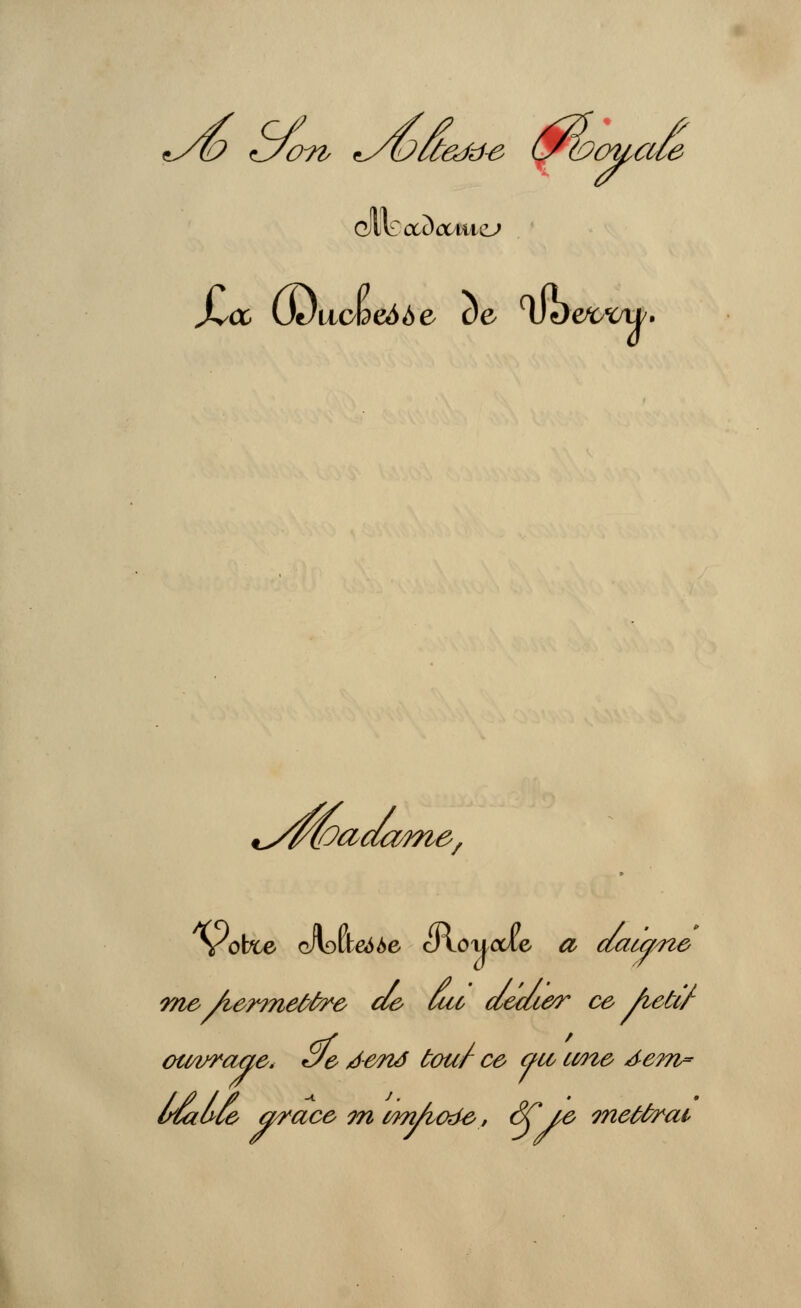 A Son Altesse Royale
Madame
La Duchesse de Berry.
Madame,
Votre Altesse Royale a daigné
me permettre de lui dédier ce petit
ouvrage. Je sens tout ce qu'une sem=
blable grâce m'impose, & je mettrai